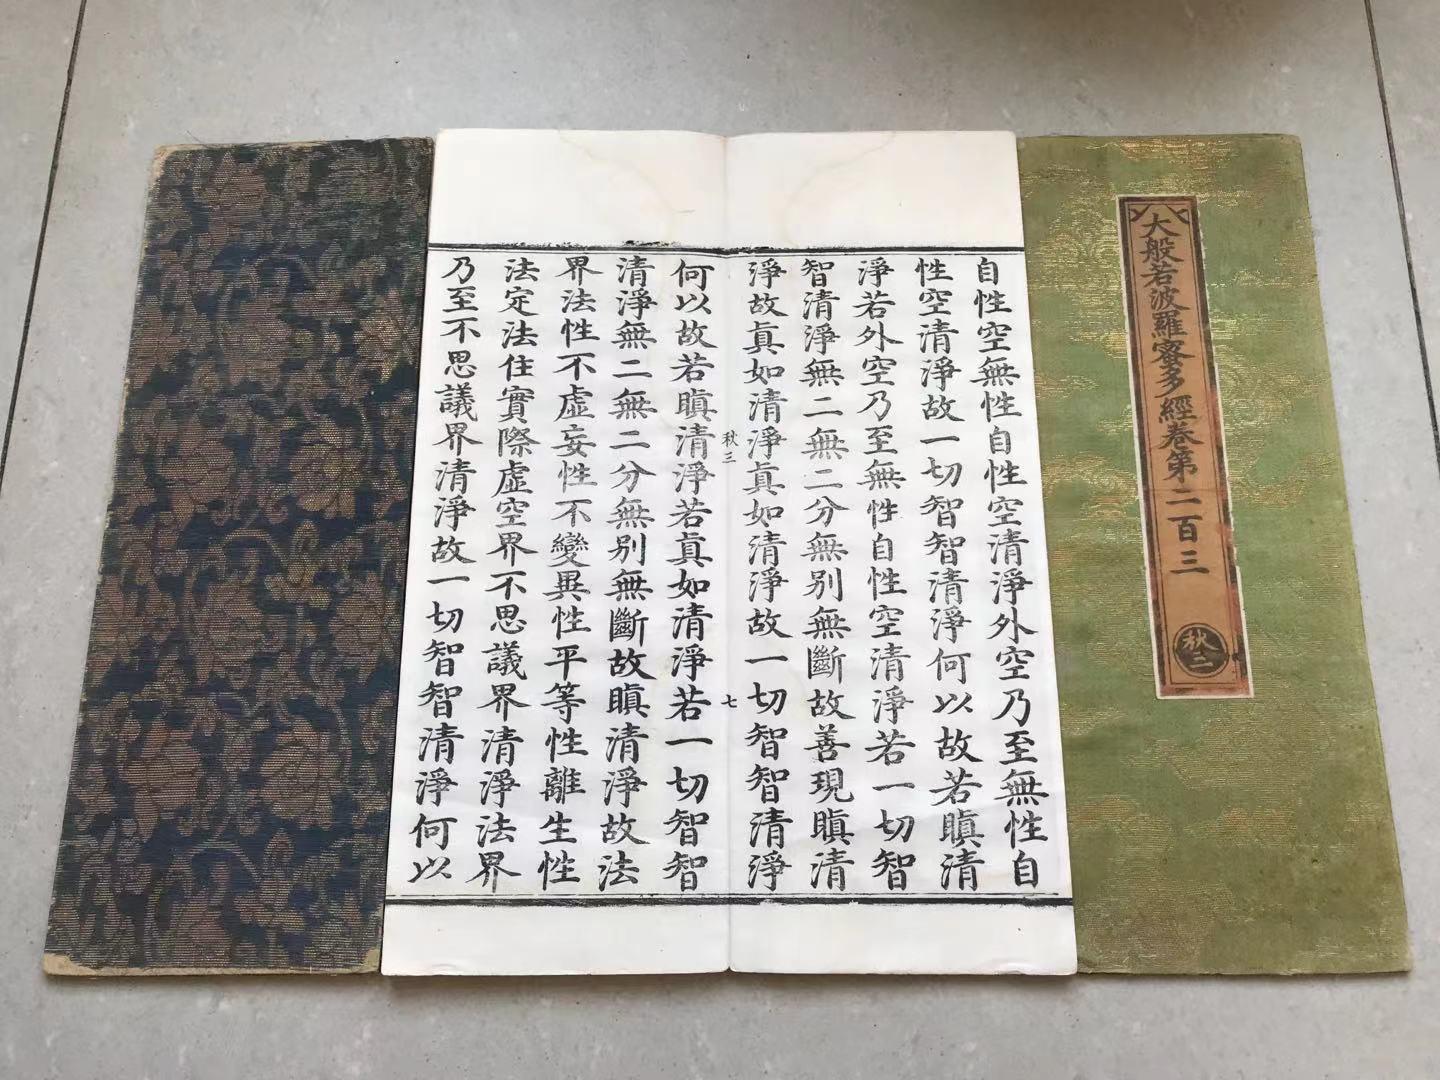 大般若波羅蜜多經卷第二百三
秋三
自性空無性自性空清淨外空乃至無性自
性空清淨故一切智智清淨何以故若瞋清
淨若外空乃至無性自性空清淨若一切智
智清淨無二無二分無別無斷故善現瞋清
淨故眞如清淨眞如清淨故一切智智清淨
秋三
七
何以故若瞋清淨若眞如清淨若一切智智
清淨無二無二分無別無斷故瞋清淨故法
界法性不虛妄性不變異性平等性離生性
法定法住實際虛空界不思議界清淨法界
乃至不思議界清淨故一切智智清淨何以